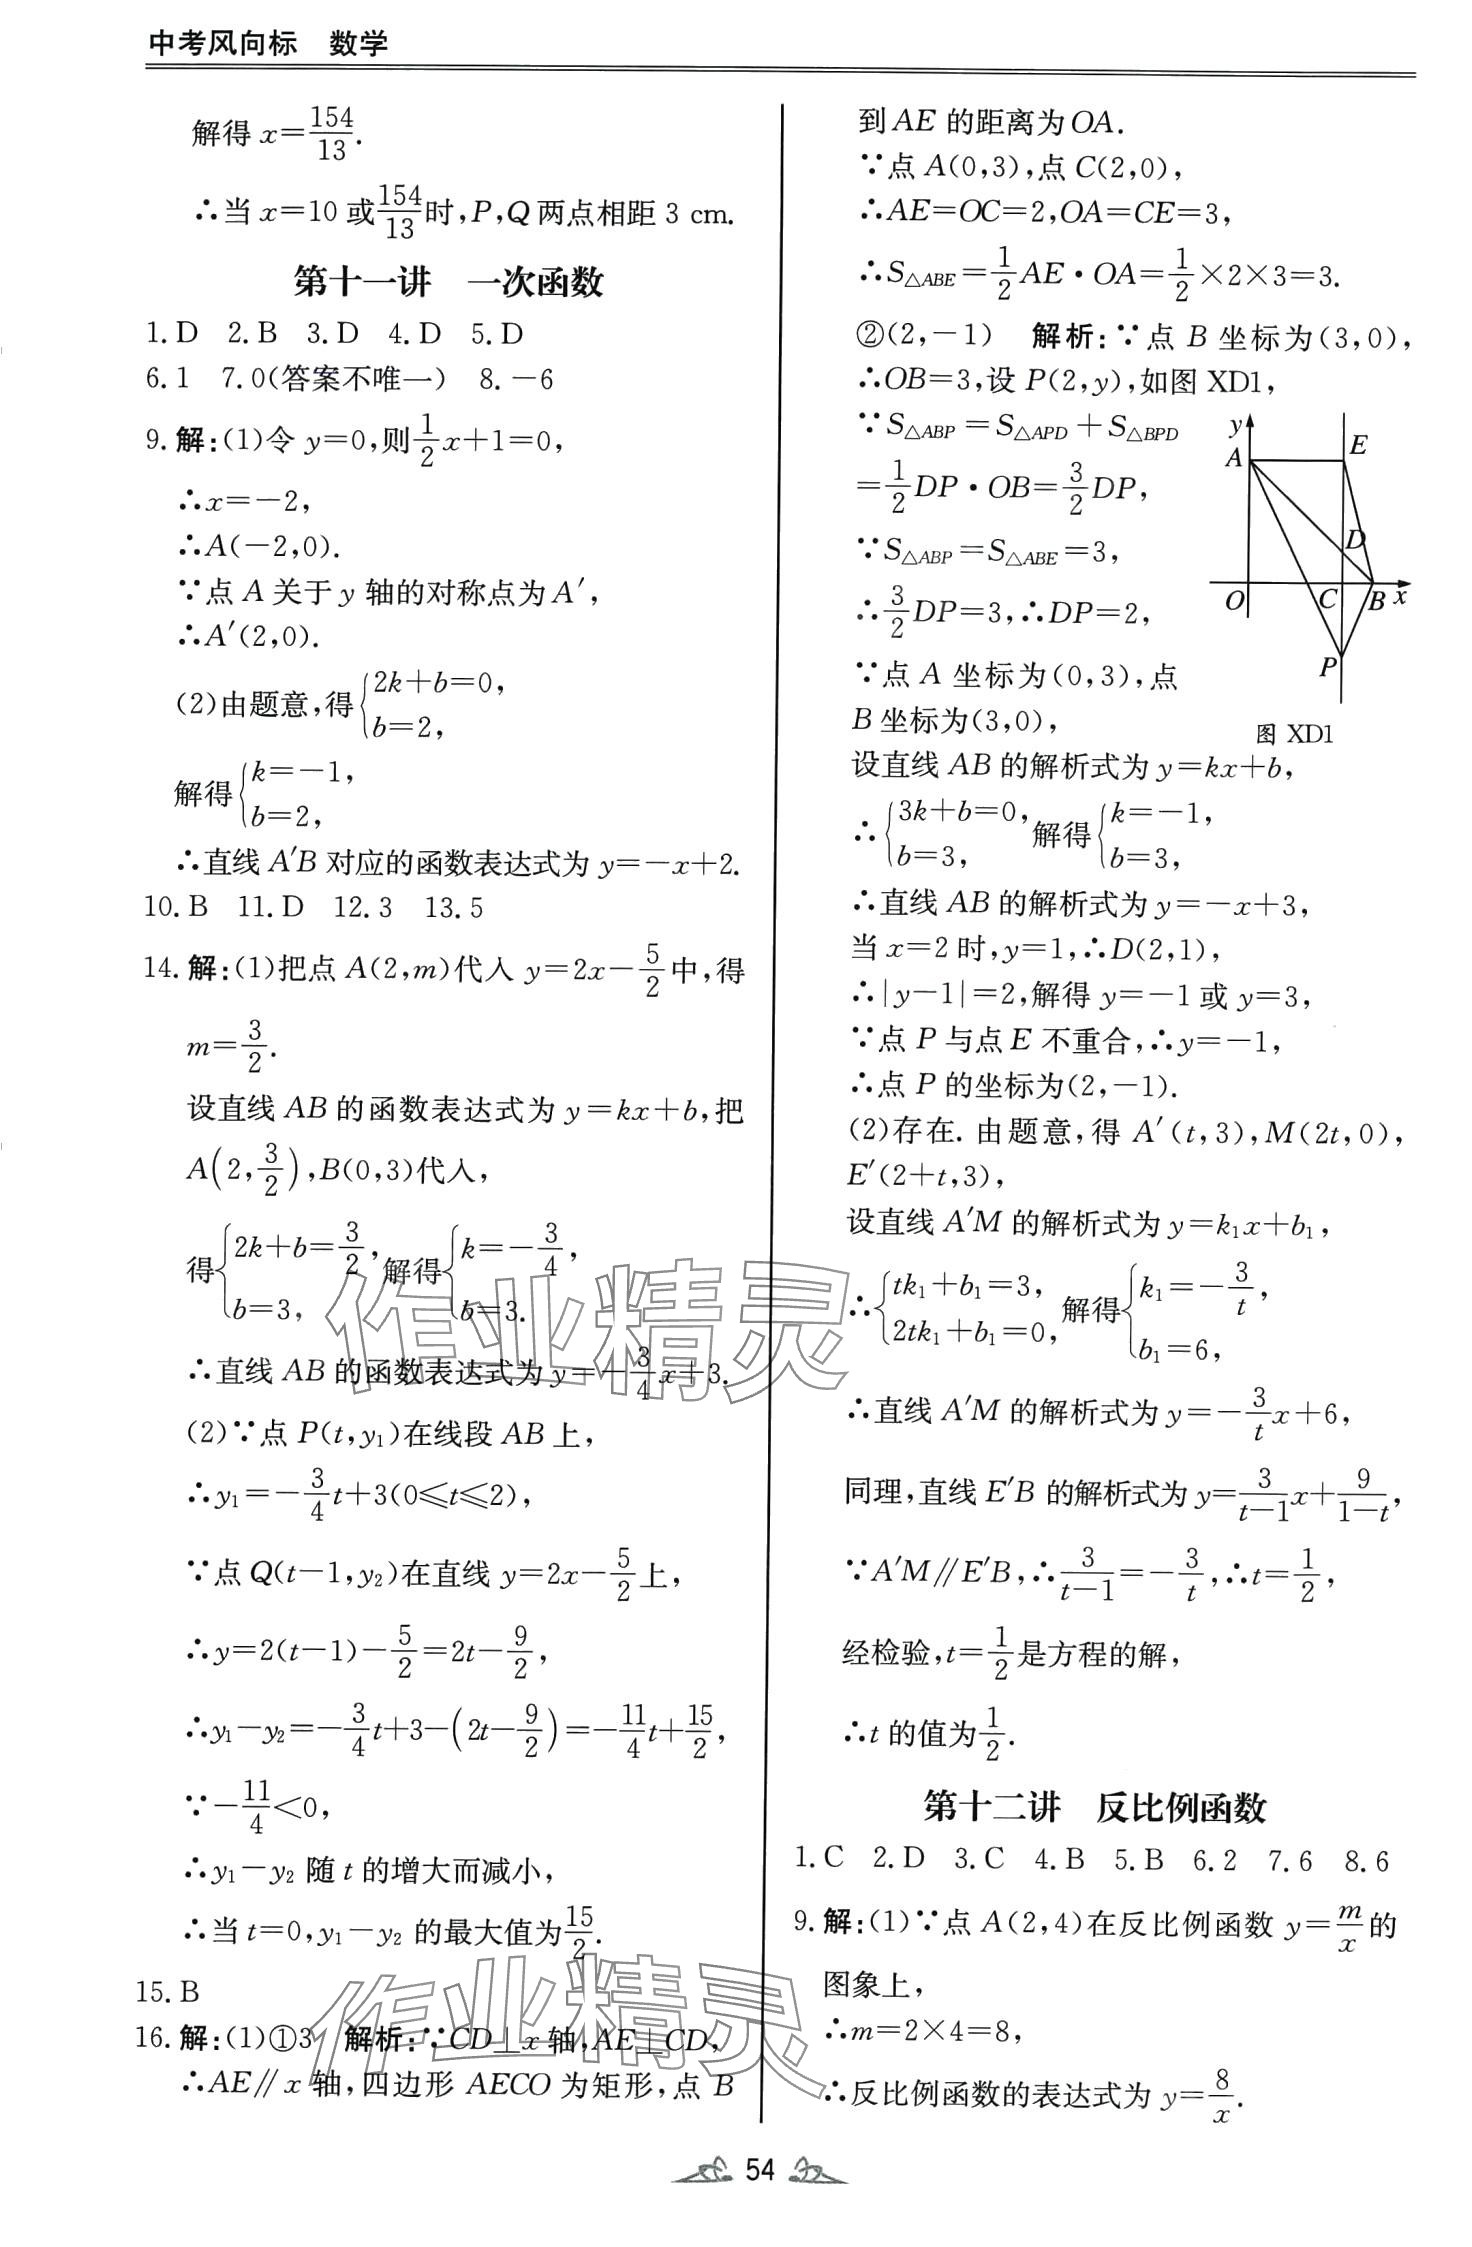 中考风向标　数学
解得 x=154/13.
∴当 x=10 或154/13时,P,Q 两点相距 3 cm.
第十一讲　一次函数
1. D　2. B　3. D　4. D　5. D
6. 1　7. 0(答案不唯一)　8. －6
9. 解:(1)令 y=0,则1/2x+1=0,
∴x=－2,
∴A(－2,0).
∵点 A 关于 y 轴的对称点为 A′,
∴A′(2,0).
(2)由题意,得{2k+b=0, b=2,
解得{k=－1, b=2,
∴直线 A′B 对应的函数表达式为 y=－x+2.
10. B　11. D　12. 3　13. 5
14. 解:(1)把点 A(2,m)代入 y=2x－5/2中,得
m=3/2.
设直线 AB 的函数表达式为 y=kx+b,把
A(2,3/2),B(0,3)代入,
得{2k+b=3/2, b=3, 解得{k=－3/4, b=3.
∴直线 AB 的函数表达式为 y=－3/4x+3.
(2)∵点 P(t,y₁)在线段 AB 上,
∴y₁=－3/4t+3(0≤t≤2),
∵点 Q(t－1,y₂)在直线 y=2x－5/2上,
∴y=2(t－1)－5/2=2t－9/2,
∴y₁－y₂=－3/4t+3－(2t－9/2)=－11/4t+15/2,
∵－11/4<0,
∴y₁－y₂ 随 t 的增大而减小,
∴当 t=0,y₁－y₂ 的最大值为15/2.
15. B
16. 解:(1)①3　解析:∵CD⊥x 轴,AE⊥CD,
∴AE∥x 轴,四边形 AECO 为矩形,点 B
到 AE 的距离为 OA.
∵点 A(0,3),点 C(2,0),
∴AE=OC=2,OA=CE=3,
∴S△ABE=1/2AE·OA=1/2×2×3=3.
②(2,－1)　解析:∵点 B 坐标为(3,0),
∴OB=3,设 P(2,y),如图 XD1,
∵S△ABP=S△APD+S△BPD
=1/2DP·OB=3/2DP,
∵S△ABP=S△ABE=3,
∴3/2DP=3,∴DP=2,
∵点 A 坐标为(0,3),点
B 坐标为(3,0),
y
A
E
D
O
C
B
x
P
图 XD1
设直线 AB 的解析式为 y=kx+b,
∴{3k+b=0, b=3, 解得{k=－1, b=3,
∴直线 AB 的解析式为 y=－x+3,
当 x=2 时,y=1,∴D(2,1),
∴|y－1|=2,解得 y=－1 或 y=3,
∵点 P 与点 E 不重合,∴y=－1,
∴点 P 的坐标为(2,－1).
(2)存在. 由题意,得 A′(t,3),M(2t,0),
E′(2+t,3),
设直线 A′M 的解析式为 y=k₁x+b₁,
∴{tk₁+b₁=3, 2tk₁+b₁=0, 解得{k₁=－3/t, b₁=6,
∴直线 A′M 的解析式为 y=－3/tx+6,
同理,直线 E′B 的解析式为 y=3/(t－1)x+9/(1－t),
∵A′M∥E′B,∴3/(t－1)=－3/t,∴t=1/2,
经检验,t=1/2是方程的解,
∴t 的值为1/2.
第十二讲　反比例函数
1. C　2. D　3. C　4. B　5. B　6. 2　7. 6　8. 6
9. 解:(1)∵点 A(2,4)在反比例函数 y=m/x的
图象上,
∴m=2×4=8,
∴反比例函数的表达式为 y=8/x.
作业精灵
作业精灵
54